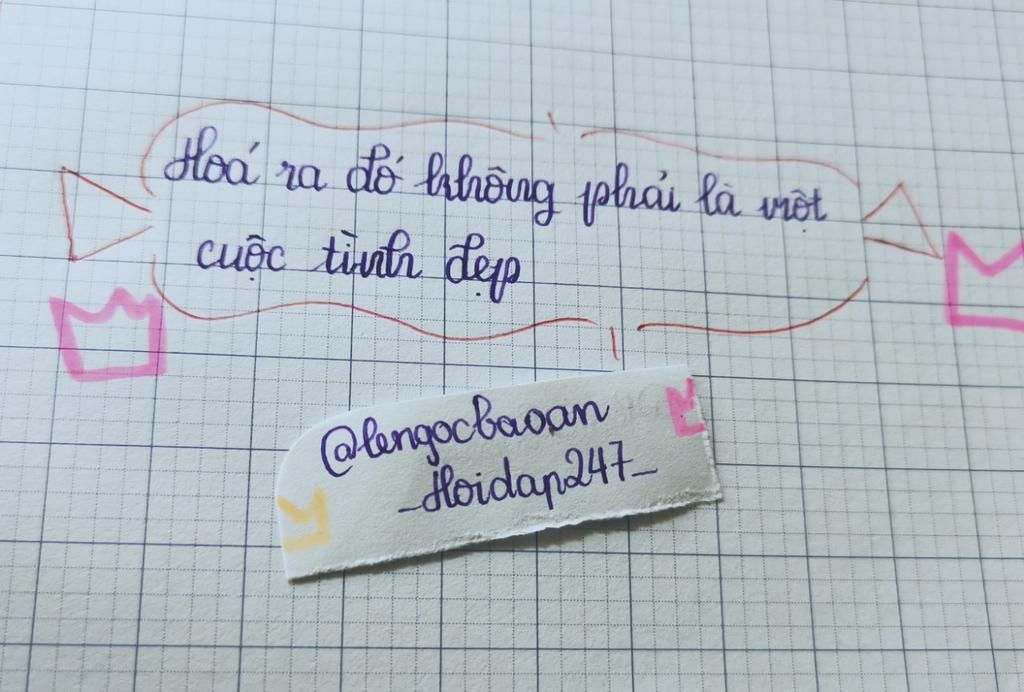 Hoá ra đó không phải là một
cuộc tình đẹp
@lengocbaoan
_Hoidap247_